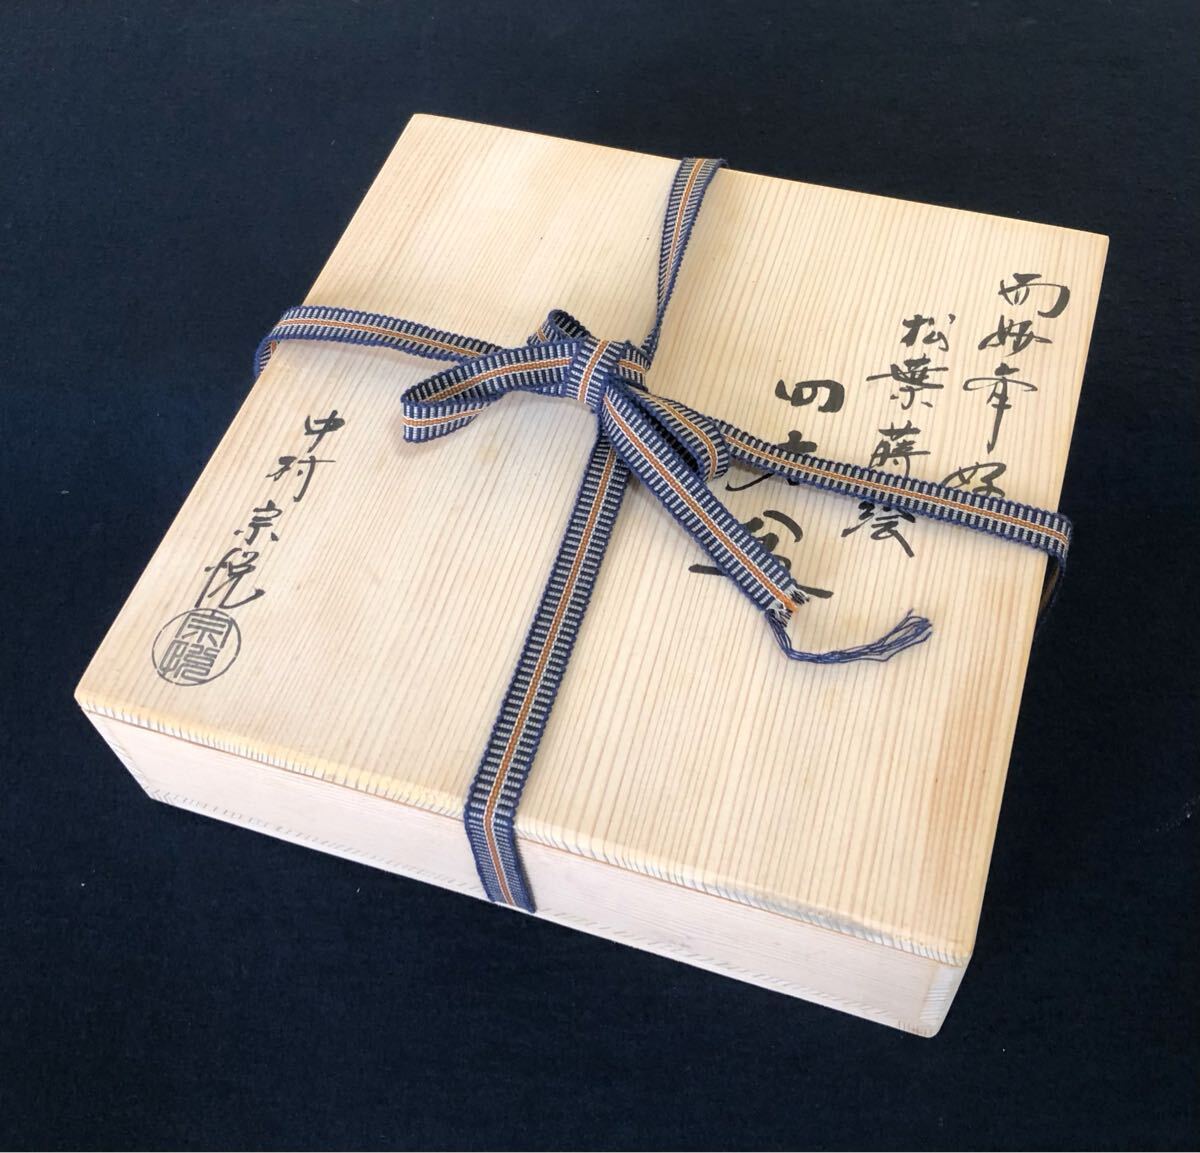 而妙斎好
松葉蒔絵
四方盆
中村宗悦
宗悦